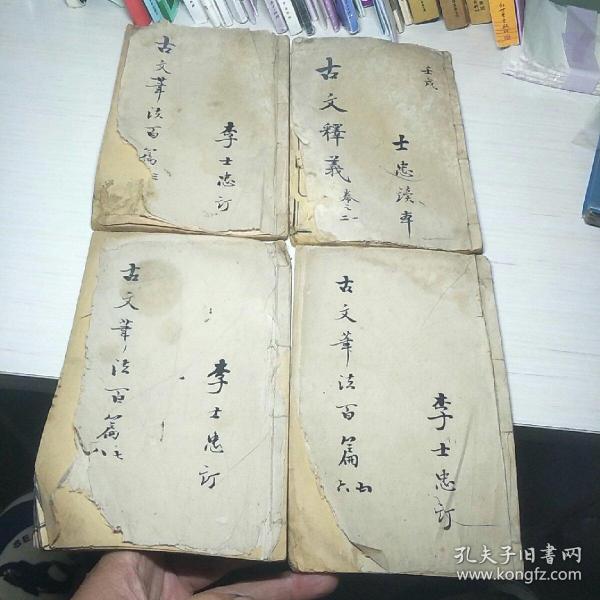 古文筆法百篇 三
李士忠訂
壬戌
古文釋義 卷之二
士忠讀本
古文筆法百篇 七八
李士忠訂
古文筆法百篇
李士忠訂
孔夫子旧書网
www.kongfz.com